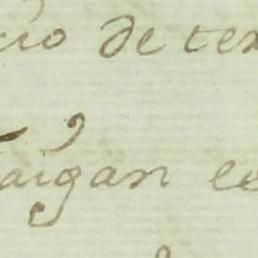 cio de tex
aigan ee